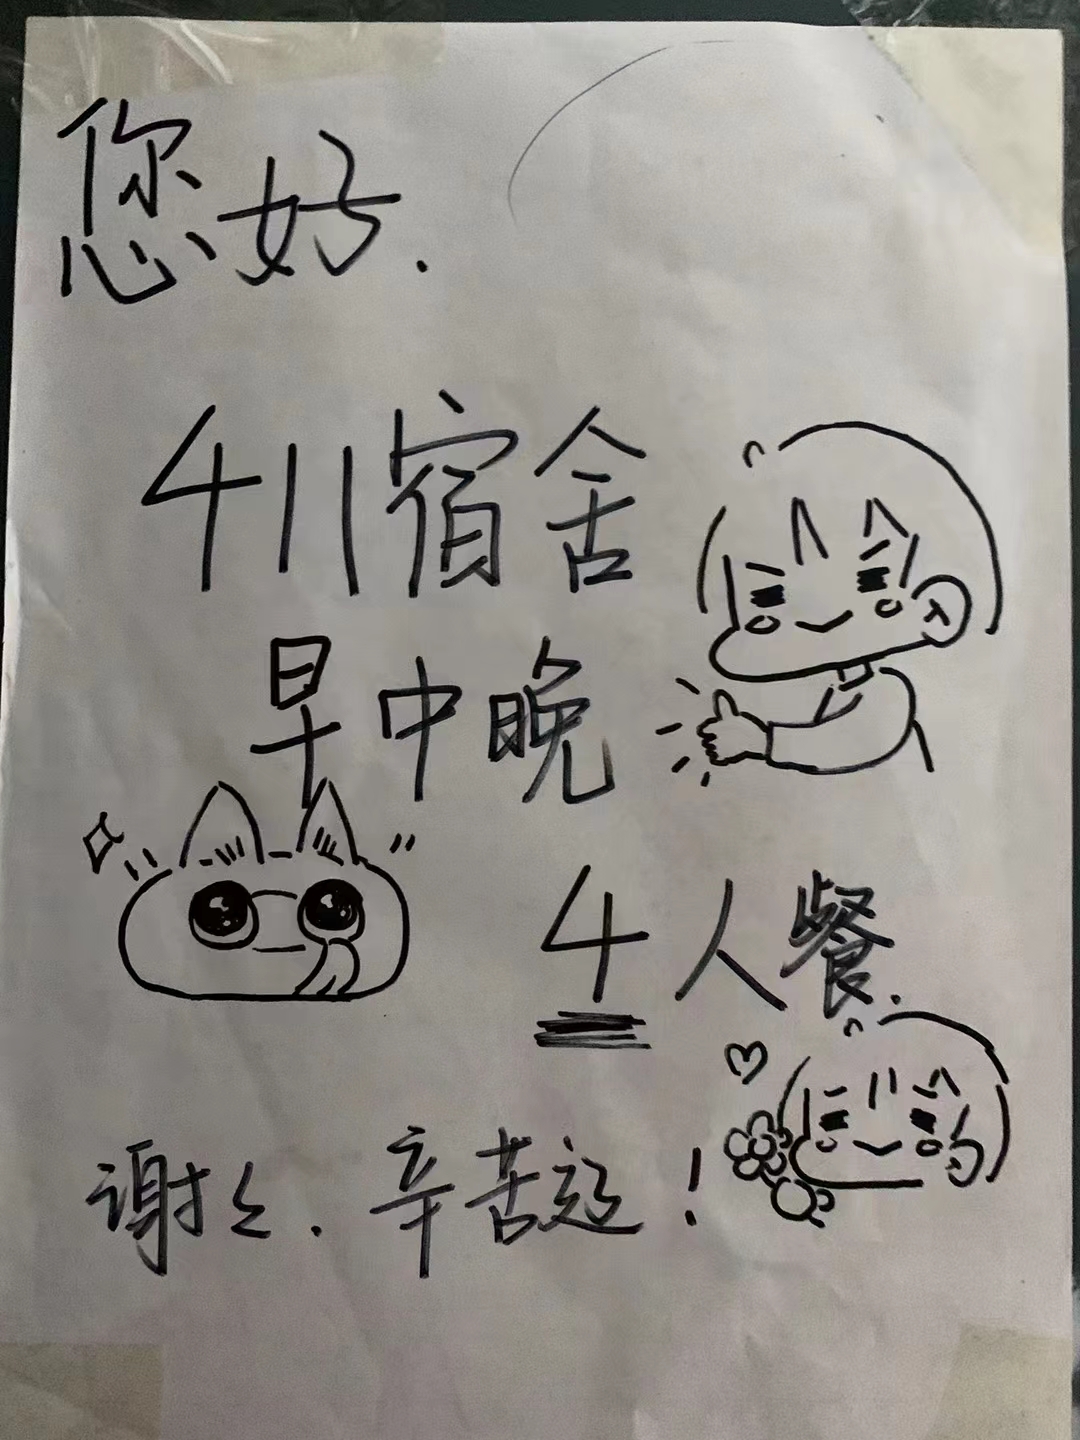 您好.
411宿舍
早中晚
4人餐.
谢々.辛苦辽!